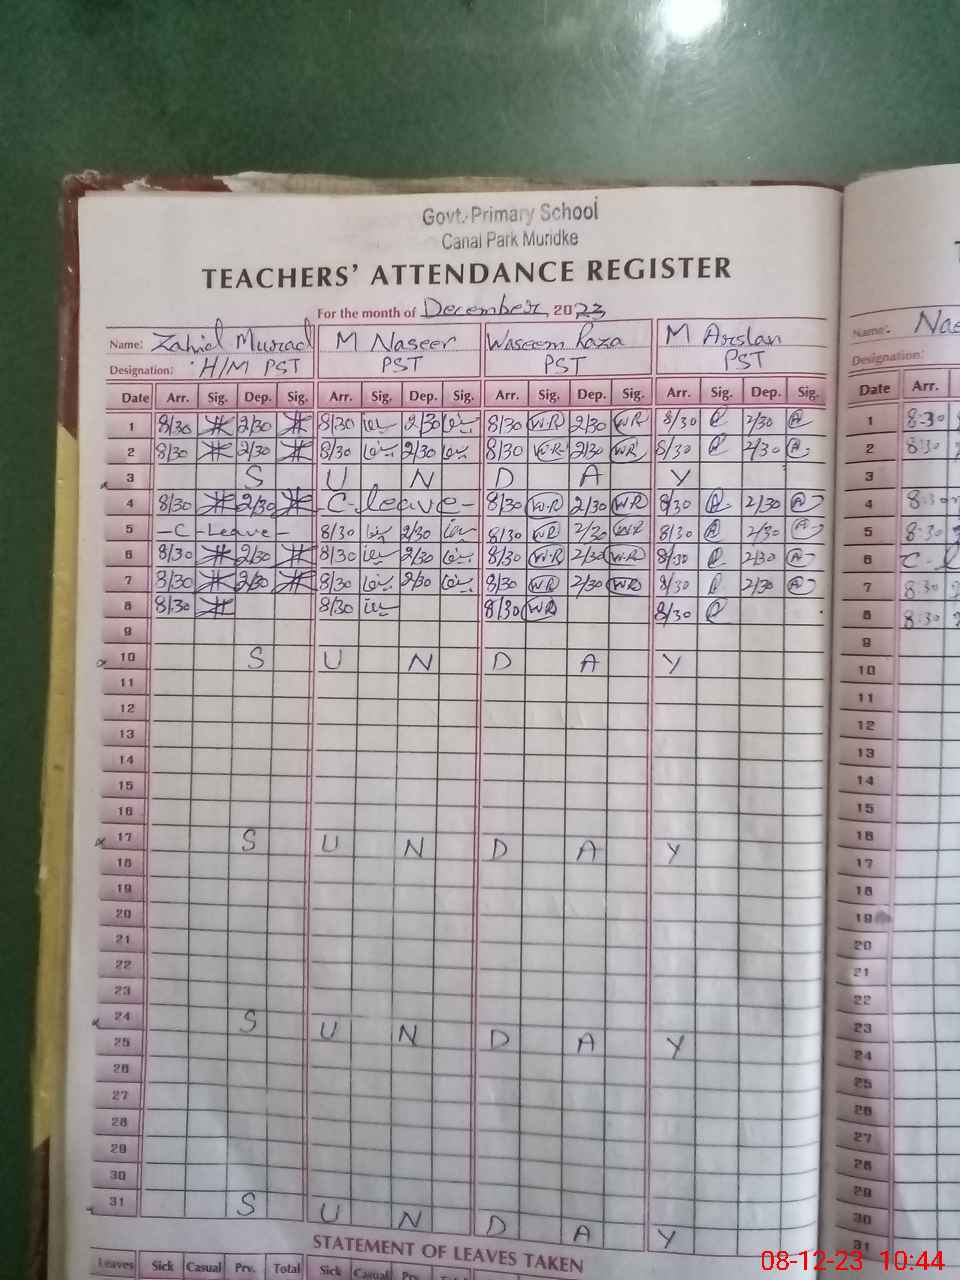 Govt. Primary School
Canal Park Muridke
TEACHERS' ATTENDANCE REGISTER
For the month of December, 2023
Name: Zahid Murad M Naseer Waseem Raza M Arslan
Designation: H/M PST PST PST PST
Date Arr. Sig. Dep. Sig. Arr. Sig. Dep. Sig. Arr. Sig. Dep. Sig. Arr. Sig. Dep. Sig.
1 8/30 2/30 8/30 2/30 8/30 WR 2/30 WR 8/30 2/30
2 8/30 2/30 8/30 2/30 8/30 WR 2/30 WR 8/30 2/30
3 S U N D A Y
4 8/30 2/30 -C-leave- 8/30 WR 2/30 WR 8/30 2/30
5 -C-Leave- 8/30 2/30 8/30 WR 2/30 WR 8/30 2/30
6 8/30 2/30 8/30 2/30 8/30 WR 2/30 WR 8/30 2/30
7 8/30 2/30 8/30 2/30 8/30 WR 2/30 WR 8/30 2/30
8 8/30 8/30 8/30 WR 8/30
9
10 S U N D A Y
11
12
13
14
15
16
17 S U N D A Y
18
19
20
21
22
23
24 S U N D A Y
25
26
27
28
29
30
31 S U N D A Y
STATEMENT OF LEAVES TAKEN
Leaves Sick Casual Prv. Total Sick Casual Prv. Total
Name:
Designation:
Date Arr.
1 8:30
2 8:30
3
4 8:30
5 8:30
6 C-
7 8:30
8 8:30
9
10
11
12
13
14
15
16
17
18
19
20
21
22
23
24
25
26
27
28
29
30
31
08-12-23 10:44